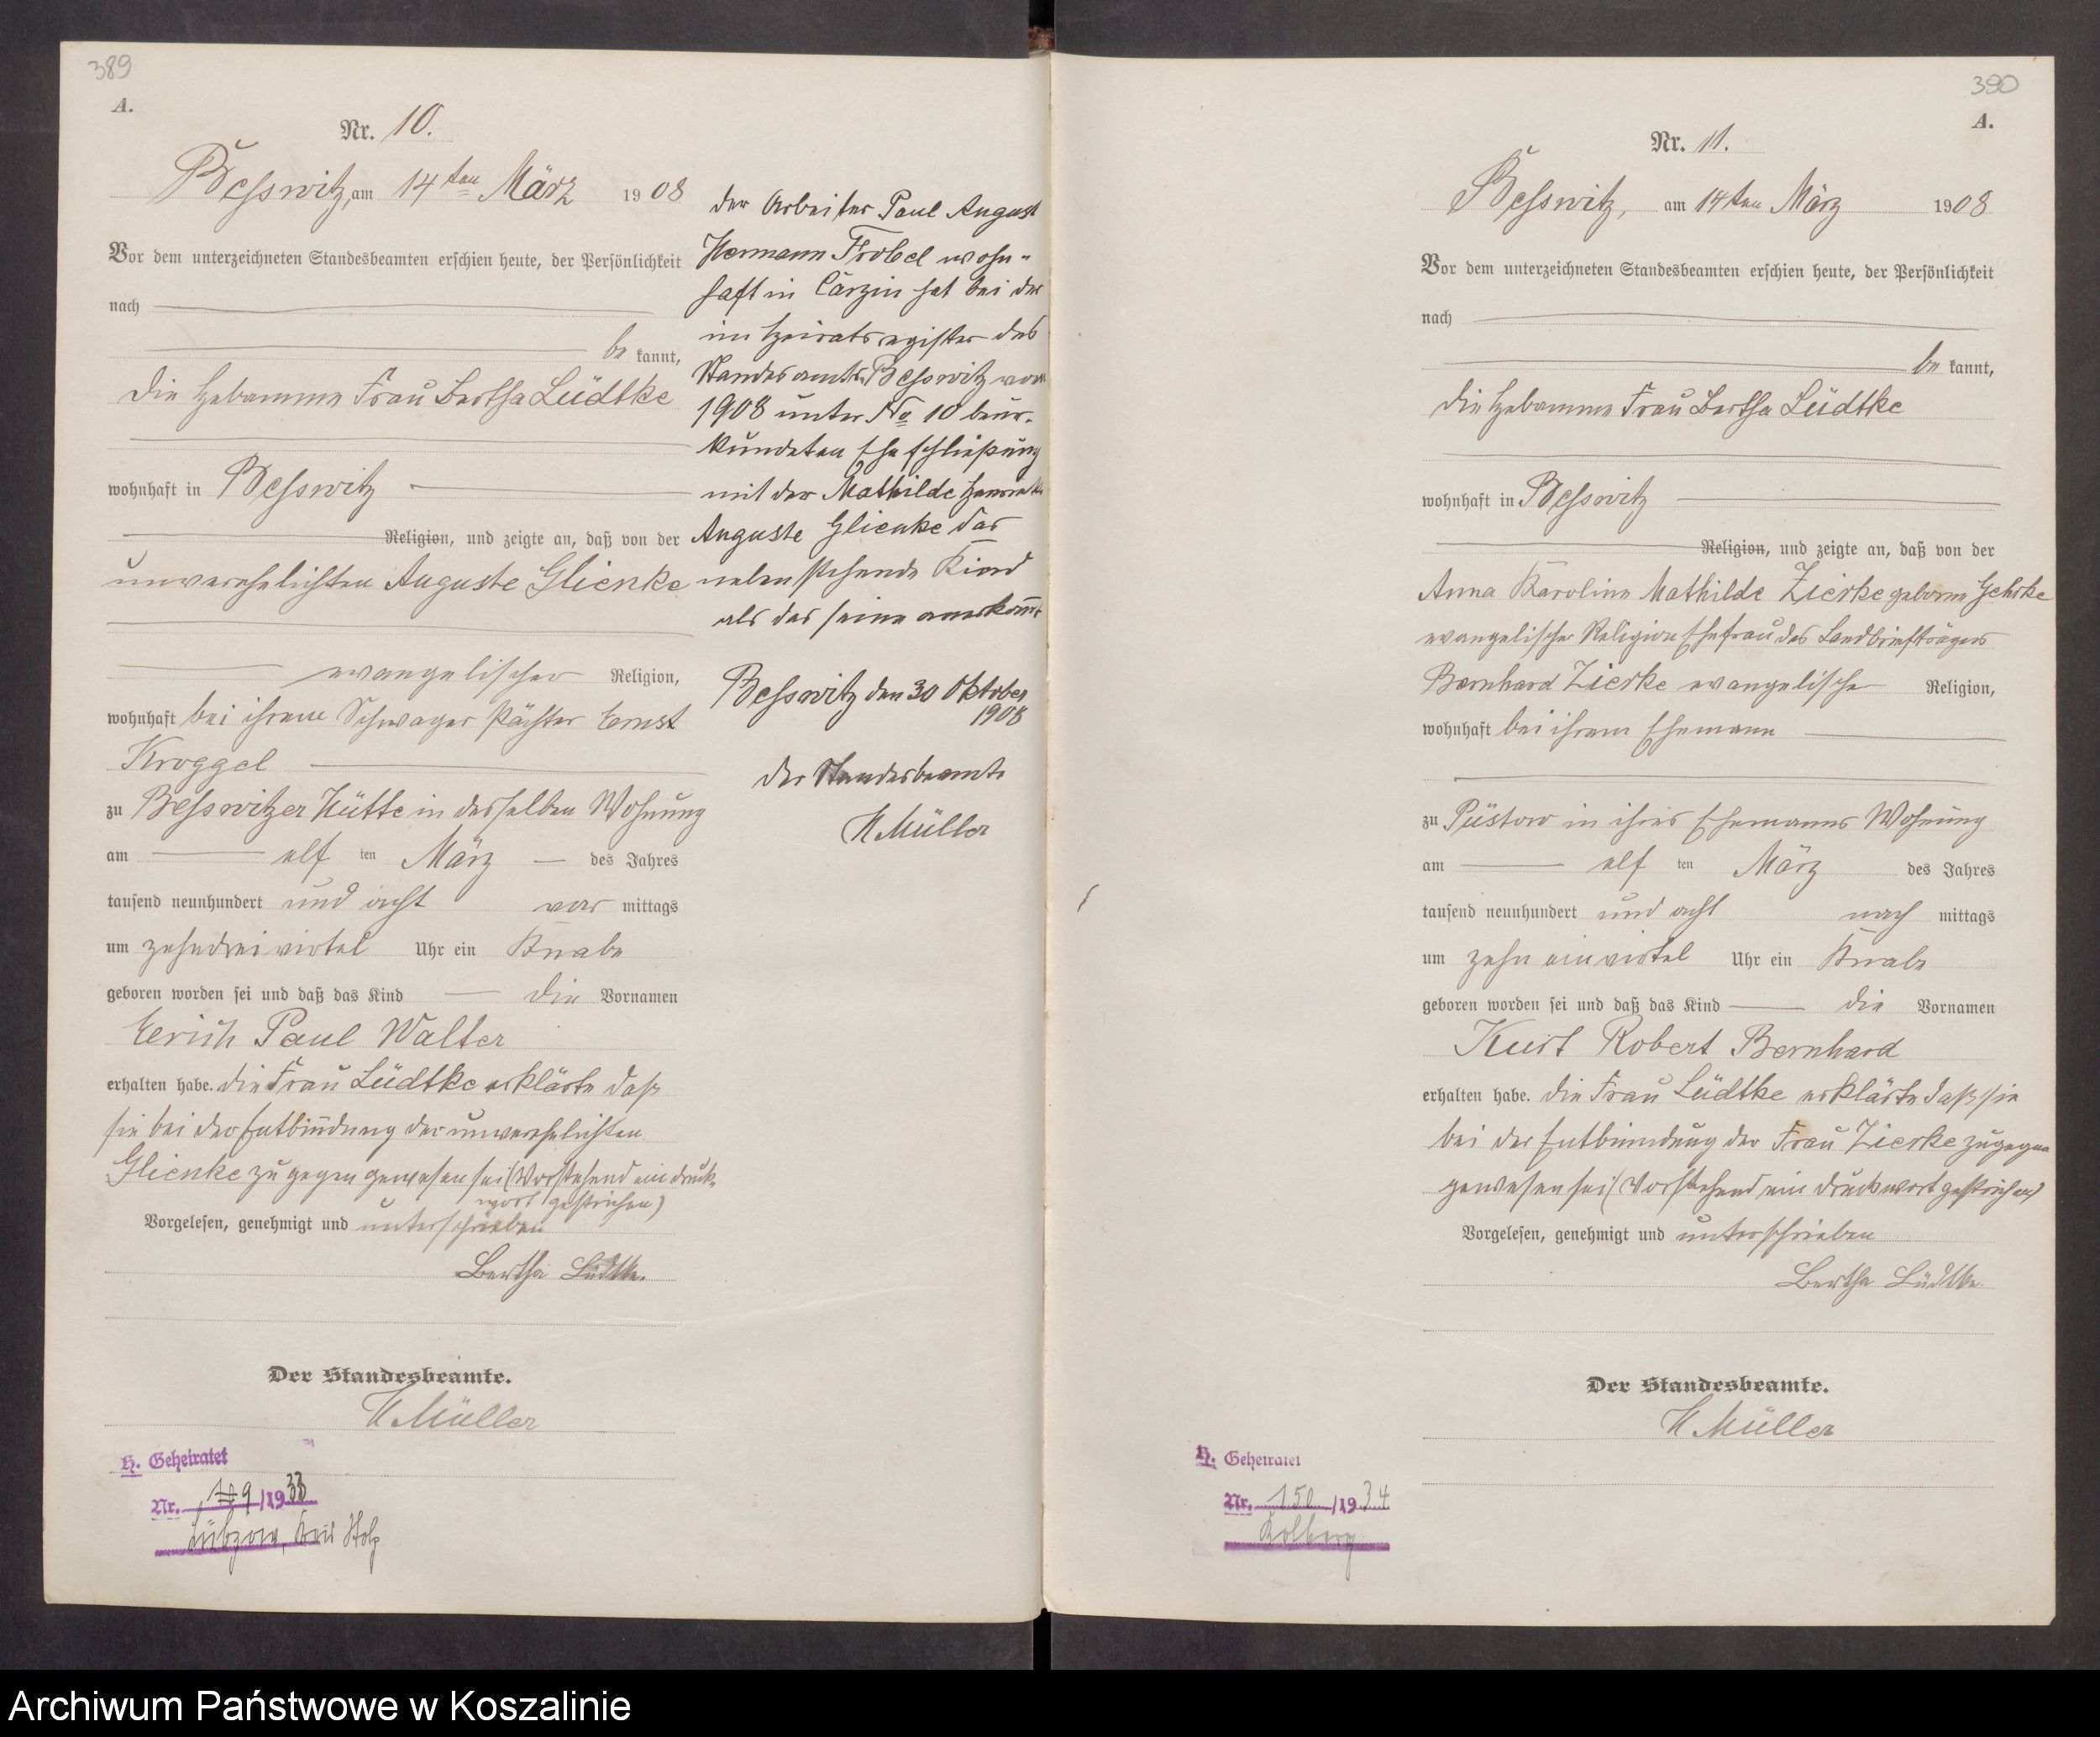 389
A.
Nr. 10.
Besswitz, am 14ten März 1908
Vor dem unterzeichneten Standesbeamten erschien heute, der Persönlichkeit
nach
be kannt,
die Hebamme Frau Bertha Lüdtke
wohnhaft in Besswitz
Religion, und zeigte an, daß von der
unverehelichten Auguste Glienke
evangelischer Religion,
wohnhaft bei ihrem Schwager Pächter Ernst
Kroggel
zu Besswitzer Hütte in desselben Wohnung
am elf ten März des Jahres
tausend neunhundert und acht vor mittags
um zehndreivirtel Uhr ein Knabe
geboren worden sei und daß das Kind die Vornamen
Erich Paul Walter
erhalten habe. die Frau Lüdtke erklärte daß
sie bei der Entbindung der unverehelichten
Glienke zugegen gewesen sei (Vorstehend ein Druck-
wort gestrichen)
Vorgelesen, genehmigt und unterschrieben
Bertha Lüdtke.
Der Standesbeamte.
H Müller
H. Geheiratet
Nr. 9 /1933
Lübzow, Kreis Stolp
der Arbeiter Paul August
Hermann Frobel wohn-
haft in Carzin hat bei der
im Heiratsregister des
Standesamts Besswitz von
1908 unter No 10 beur-
kundeten Eheschließung
mit der Mathilde
Auguste Glienke das
nebenstehende Kind
als das seine anerkannt
Besswitz den 30 Oktober
1908
der Standesbeamte
H Müller
390
A.
Nr. 11.
Besswitz, am 14ten März 1908
Vor dem unterzeichneten Standesbeamten erschien heute, der Persönlichkeit
nach
be kannt,
die Hebamme Frau Bertha Lüdtke
wohnhaft in Besswitz
Religion, und zeigte an, daß von der
Anna Karoline Mathilde Zierke geborne Gehrke
evangelischer Religion Ehefrau des Landbriefträgers
Bernhard Zierke evangelische Religion,
wohnhaft bei ihrem Ehemann
zu Püstow in ihres Ehemanns Wohnung
am elf ten März des Jahres
tausend neunhundert und acht nach mittags
um zehn einvirtel Uhr ein Knabe
geboren worden sei und daß das Kind die Vornamen
Kurt Robert Bernhard
erhalten habe. die Frau Lüdtke erklärte daß sie
bei der Entbindung der Frau Zierke zugegen
gewesen sei (Vorstehend ein Druckwort gestrichen)
Vorgelesen, genehmigt und unterschrieben
Bertha Lüdtke.
Der Standesbeamte.
H Müller
H. Geheiratet
Nr. 150 /1934
Kolberg
Archiwum Państwowe w Koszalinie